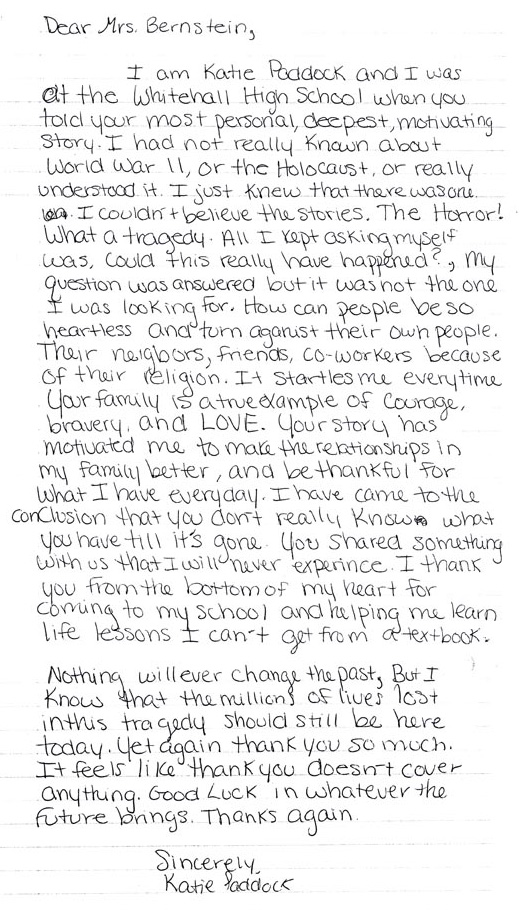 Dear Mrs. Bernstein,
I am Katie Paddock and I was
at the Whitehall High School when you
told your most personal, deepest, motivating
story. I had not really known about
World War 11, or the Holocaust, or really
understood it. I just knew that there was one.
I couldn't believe the stories. The Horror!
What a tragedy. All I kept asking myself
was, could this really have happened?, My
question was answered but it was not the one
I was looking for. How can people be so
heartless and turn against their own people.
Their neigbors, friends, co-workers because
of their religion. It startles me everytime
Your family is a true example of courage,
bravery, and LOVE. Your story has
motivated me to make the relationships in
my family better, and be thankful for
what I have everyday. I have came to the
conclusion that you don't really know what
you have till it's gone. You shared something
with us that I will never experince. I thank
you from the bottom of my heart for
coming to my school and helping me learn
life lessons I can't get from a textbook.
Nothing will ever change the past, But I
know that the millions of lives lost
in this tragedy should still be here
today. Yet again thank you so much.
It feels like thank you doesn't cover
anything. Good Luck in whatever the
future brings. Thanks again.
Sincerely,
Katie Paddock